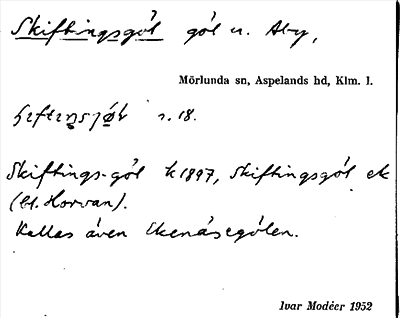 Skiftingsgöl göl u. Åby,
Mörlunda sn, Aspelands hd, Klm. l.
s. 18.
Skiftings-göl k 1897, Skiftingsgöl ek
(bl. Horvan).
Kallas även Ekenäsegölen.
Ivar Modéer 1952